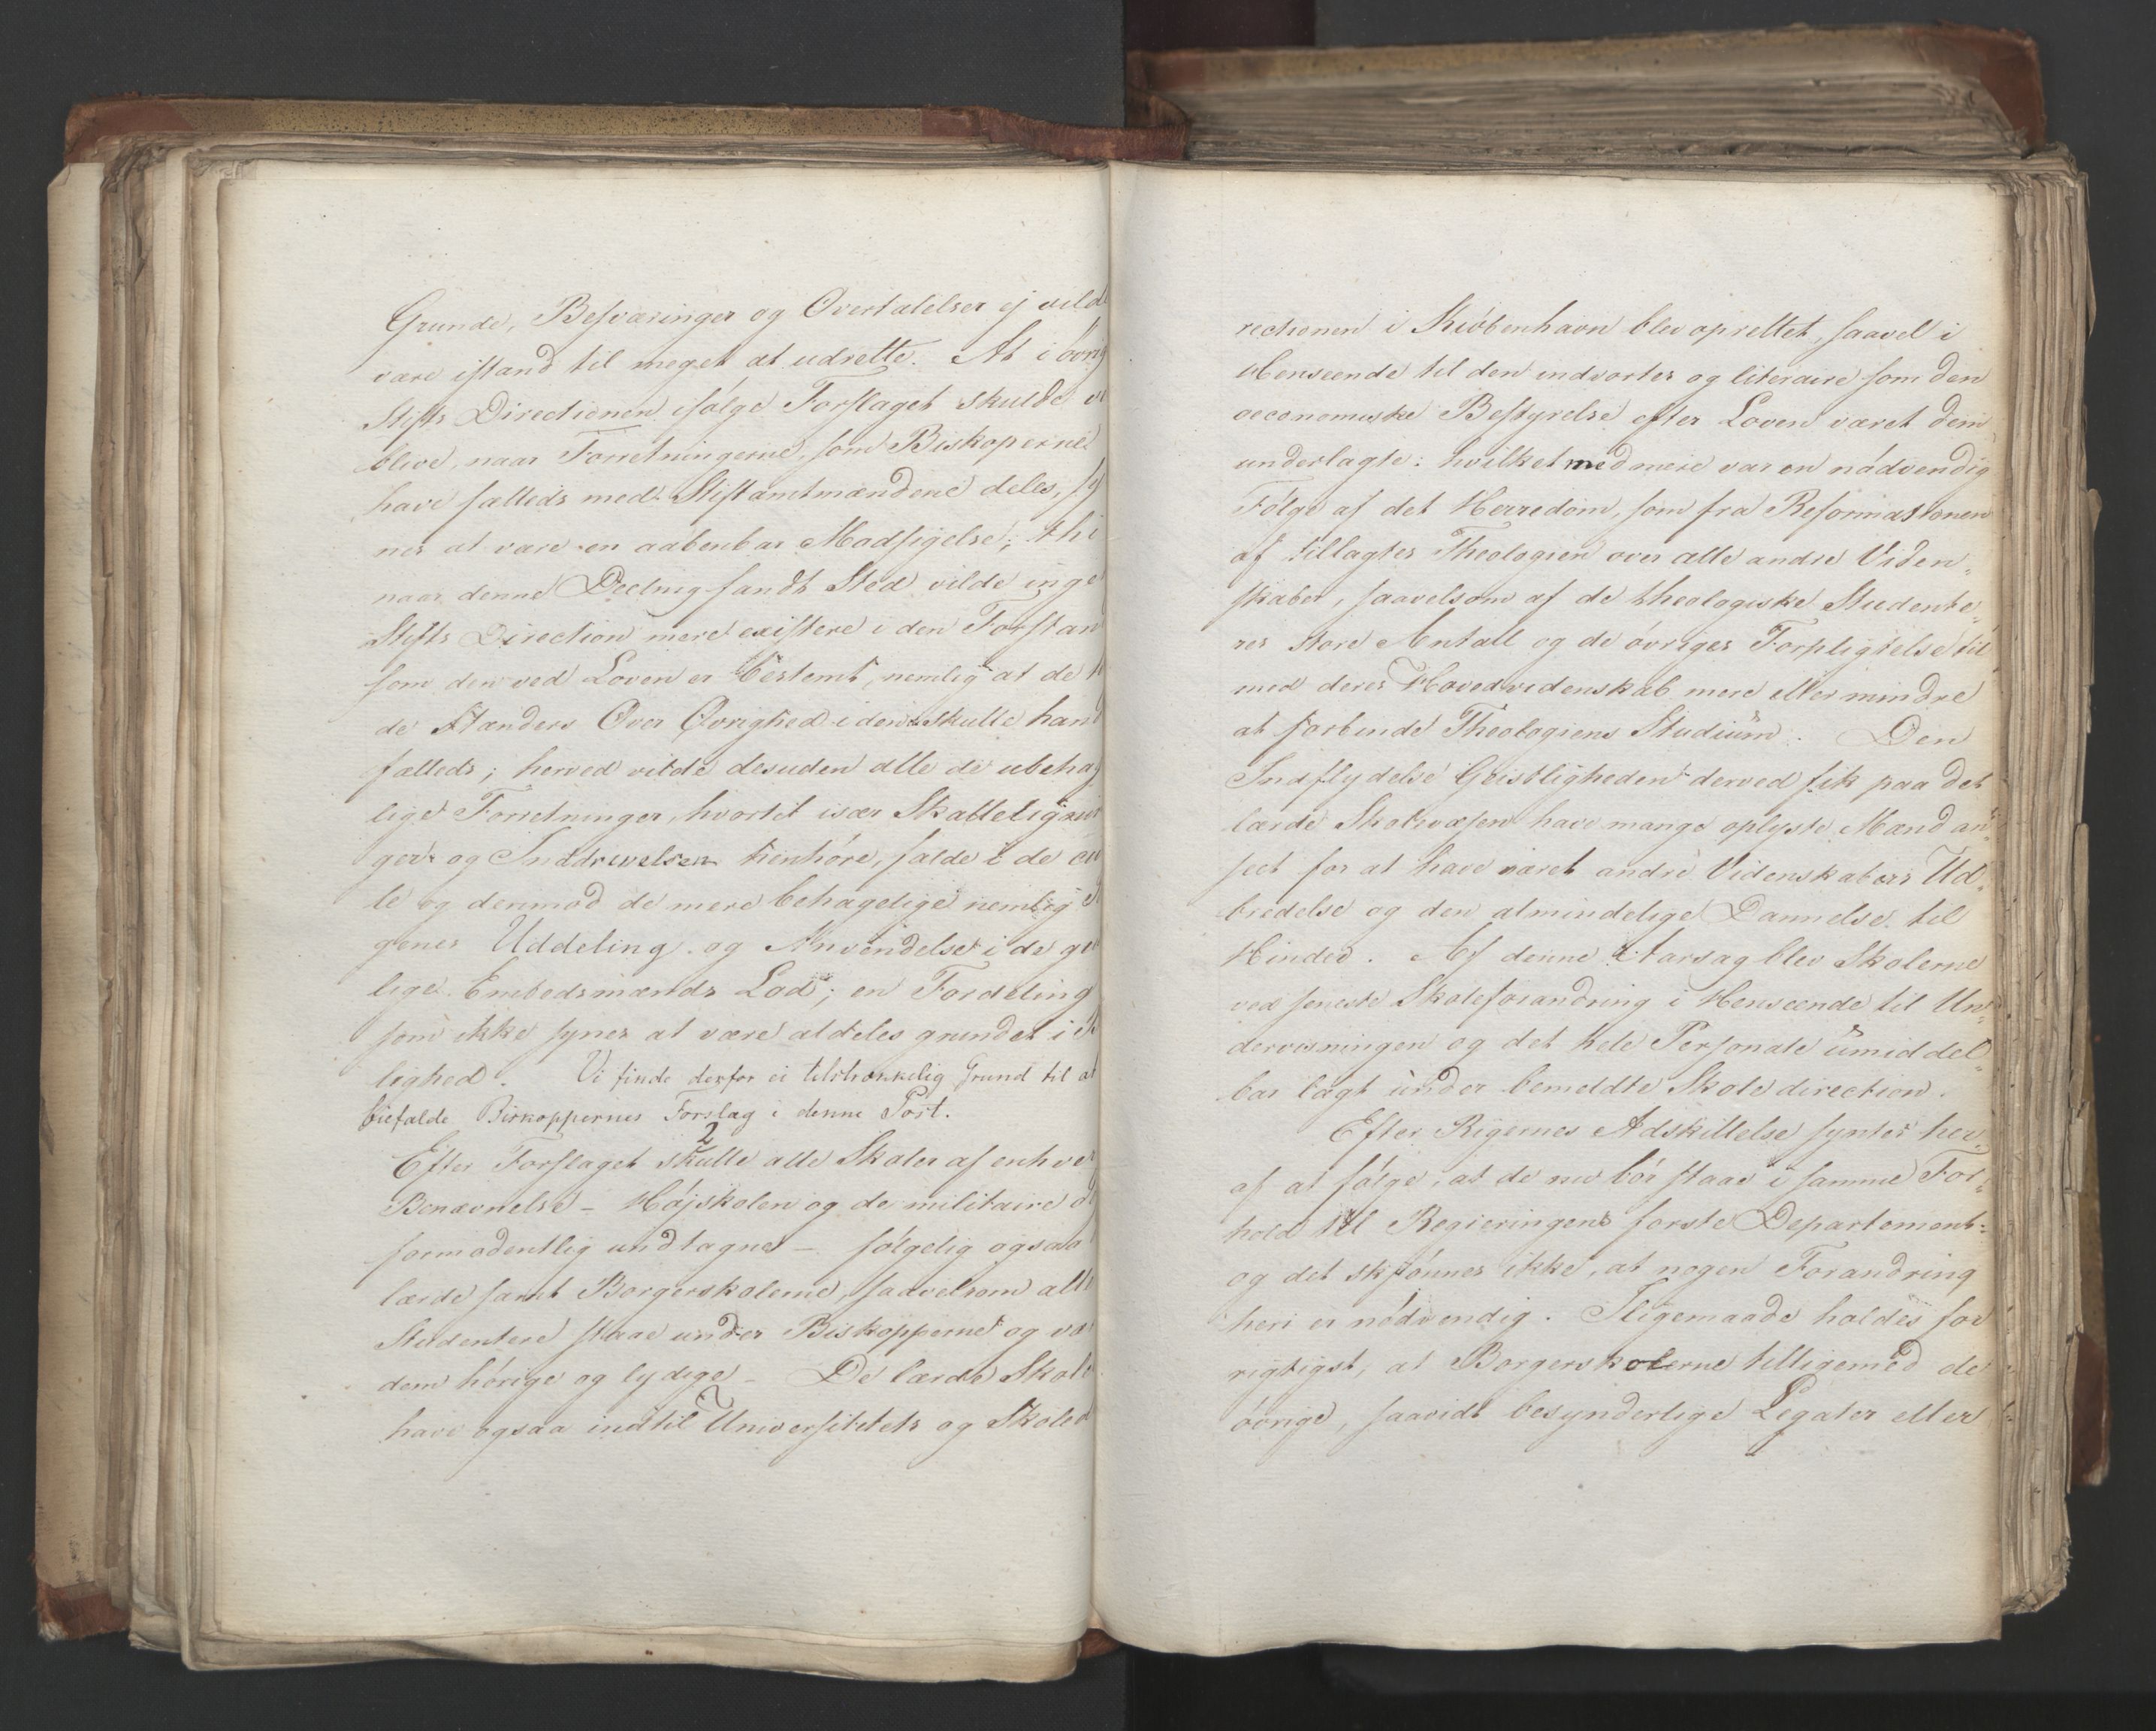 Grunde, Besværinger og Overtalelser ej vild
være istand til meget at udrette. At i øvrig
Stifts Directionen ifølge Forslaget skulde
blive, naar Forretningerne, som Biskoperne
have fælleds med Stiftamtmændene deles, sy
nes at være en aabenbar Modsigelse; thi
naar denne Deeling fandt Sted vilde inge
Stifts Direction mere existere i den Forstand
som den ved Loven er bestemt, nemlig at de
de Stænders Over Øvrighed i den skulle hand
fælleds; herved vilde desuden alle de ubehag
lige Forretninger, hvortil især Skatteligni
ger og Inddrivelsen henhøre, falde i de civi
le og derimod de mere behagelige nemlig
genes Uddeling og Anvendelse i de gei
lige Embedsmænds Lod; en Fordeling
som ikke synes at være aldeles grundet i B
lighed. Vi finde derfor ei tilstrækkelig Grund til at
biefalde Biskoppernes Forslag i denne Post.
2
Efter Forslaget skulle alle Skoler af enhver
Benævnelse – Højskolen og de militaire
formodentlig undtagne – følgelig ogsaa
lærde samt Borgerskolerne, saavelsom alle
Studentere staae under Biskopperne og væ
dem hørige og lydige – De lærde Skole
have ogsaa indtil Universitetets og Skoled
rectionen i Kiøbenhavn blev oprettet, saavel i
Henseende til den indvortes og literaire som den
oeconomiske Bestyrelse efter Loven været dem
underlagte: hvilket med mere var en nødvendig
Følge af det Herredom, som fra Reformationen
af tillagtes Theologien over alle andre Viden-
skaber, saavelsom af de theologiske Studente-
res store Antall og de øvriges Forpligtelse til
med deres Hovedvidenskab mere eller mindre
at forbinde Theologiens Studium. Den
Indflydelse Geistligheden derved fik paa det
lærde Skolevæsen have mange oplyste Mænd an-
seet for at have været andre Videnskabers Ud-
bredelse og den almindelige Dannelse til
Hinder. Af denne Aarsag blev Skolerne
ved seneste Skoleforandring i Henseende til Un-
dervisningen og det hele Personale umiddel-
bar lagt under bemeldte Skoledirection.
Efter Rigernes Adskillelse syntes her-
af at følge, at de nu bør staae i samme For-
hold til Regieringens første Departement:
og det skjønnes ikke, at nogen Forandring
heri er nødvendig. Iligemaade holdes for
rigtigst, at Borgerskolerne tilligemed de
øvrige, saavidt besynderlige Legater eller